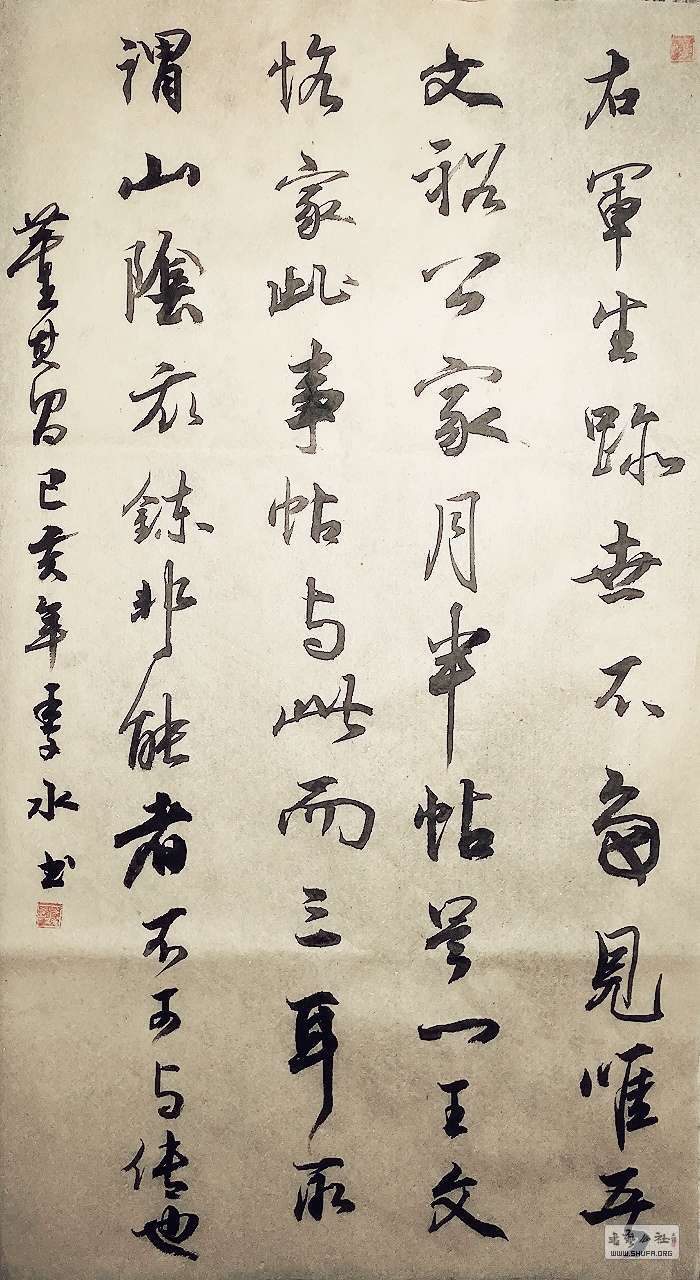 右軍生跡世不多見唯吾
文裕公家月半帖一王文
恪家此事帖与此而三耳所
謂山陰衣鉢非能者不可与傳也
董其昌己亥年书
书艺公社
WWW.SHUFA.ORG